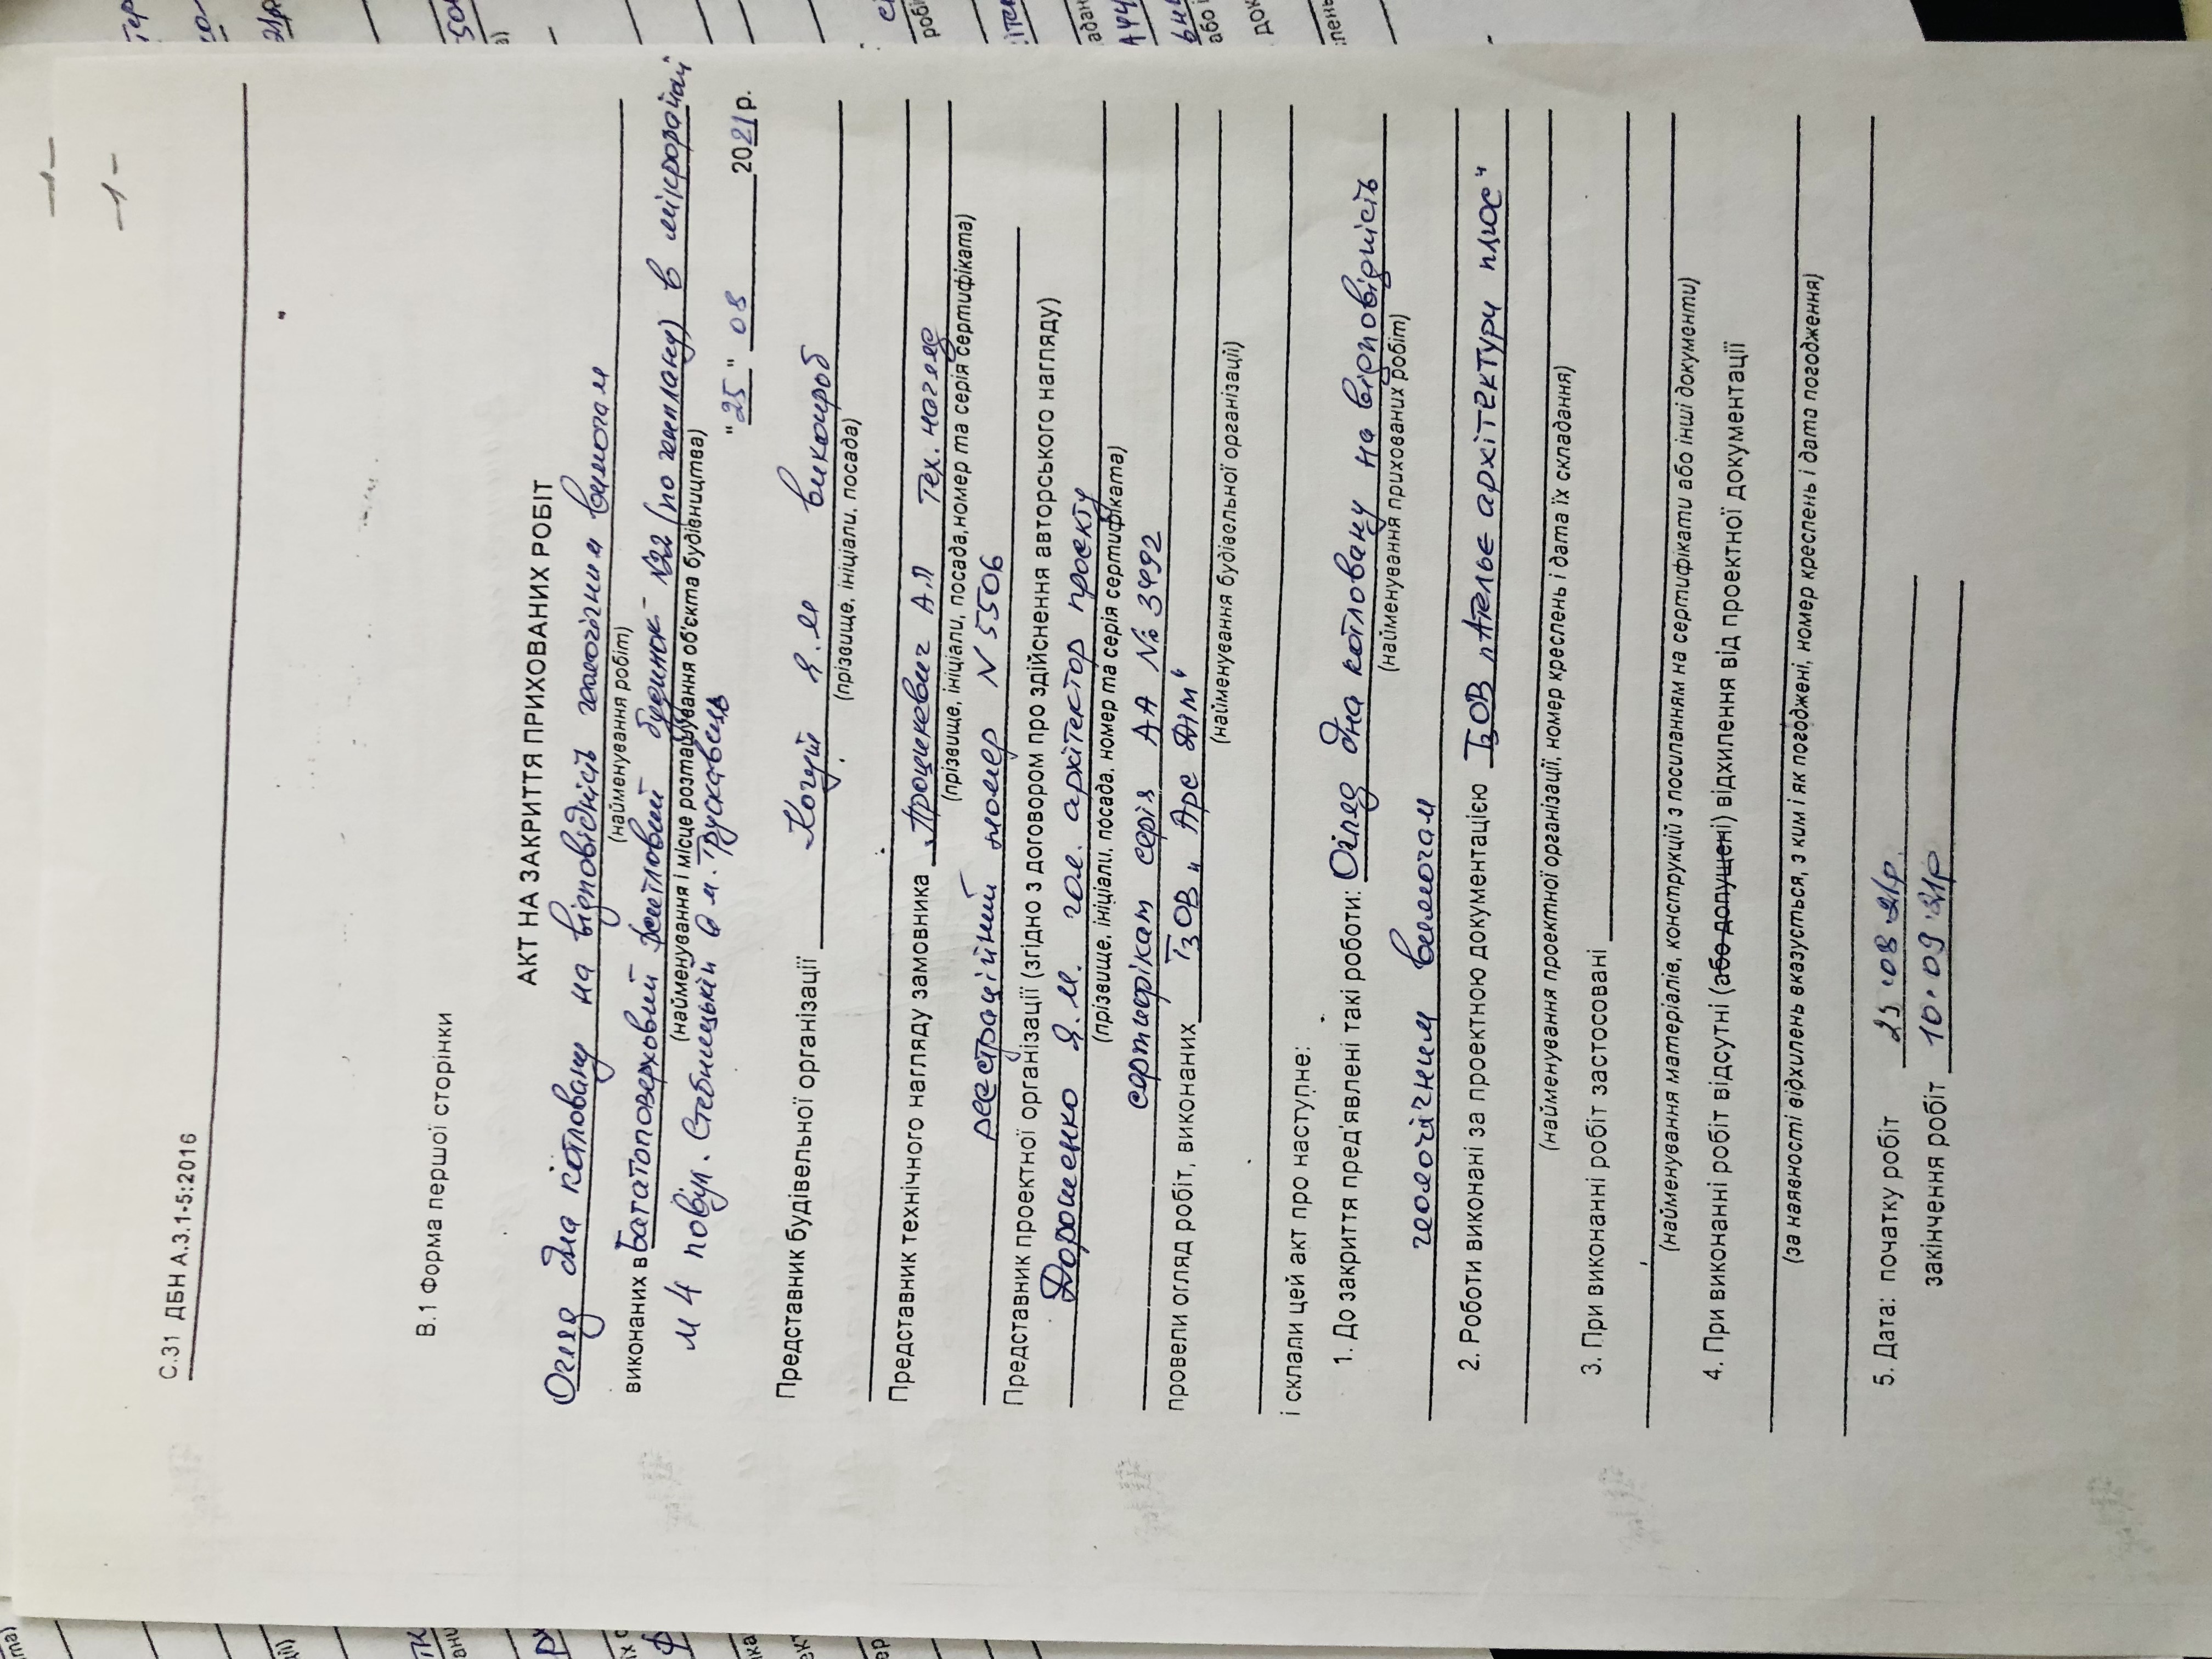 -1-
-1-
С.31 ДБН А.3.1-5:2016
В.1 Форма першої сторінки
АКТ НА ЗАКРИТТЯ ПРИХОВАНИХ РОБІТ
Огляд дна котловану на відповідність геологічним вимогам
(найменування робіт)
виконаних в Багатоповерховий житловий будинок №22 (по генплану) в мікрорайоні
(найменування і місце розташування об'єкта будівництва)
М 4 по вул. Стебницькій в м. Трускавець
"25" 08 2021р.
Представник будівельної організації Когут Я.М виконроб
(прізвище, ініціали, посада)
Представник технічного нагляду замовника Процикевич А.П Тех. нагляд
(прізвище, ініціали, посада, номер та серія сертифіката)
реєстраційний номер N 5506
Представник проектної організації (згідно з договором про здійснення авторського нагляду)
Дорошенко Я.М. гол. архітектор проекту
(прізвище, ініціали, посада, номер та серія сертифіката)
сертифікат серія АА № 3492
провели огляд робіт, виконаних ТзОВ „Арс Дім"
(найменування будівельної організації)
і склали цей акт про наступне:
1. До закриття пред'явлені такі роботи: Огляд дна котловану на відповідність
(найменування прихованих робіт)
геологічним вимогам
2. Роботи виконані за проектною документацією ТзОВ „Ательє архітектури плюс"
(найменування проектної організації, номер креслень і дата їх складання)
3. При виконанні робіт застосовані
(найменування матеріалів, конструкцій з посиланням на сертифікати або інші документи)
4. При виконанні робіт відсутні (або допущені) відхилення від проектної документації
(за наявності відхилень вказується, з ким і як погоджені, номер креслень і дата погодження)
5. Дата: початку робіт 25.08.21р.
закінчення робіт 10.09.21р